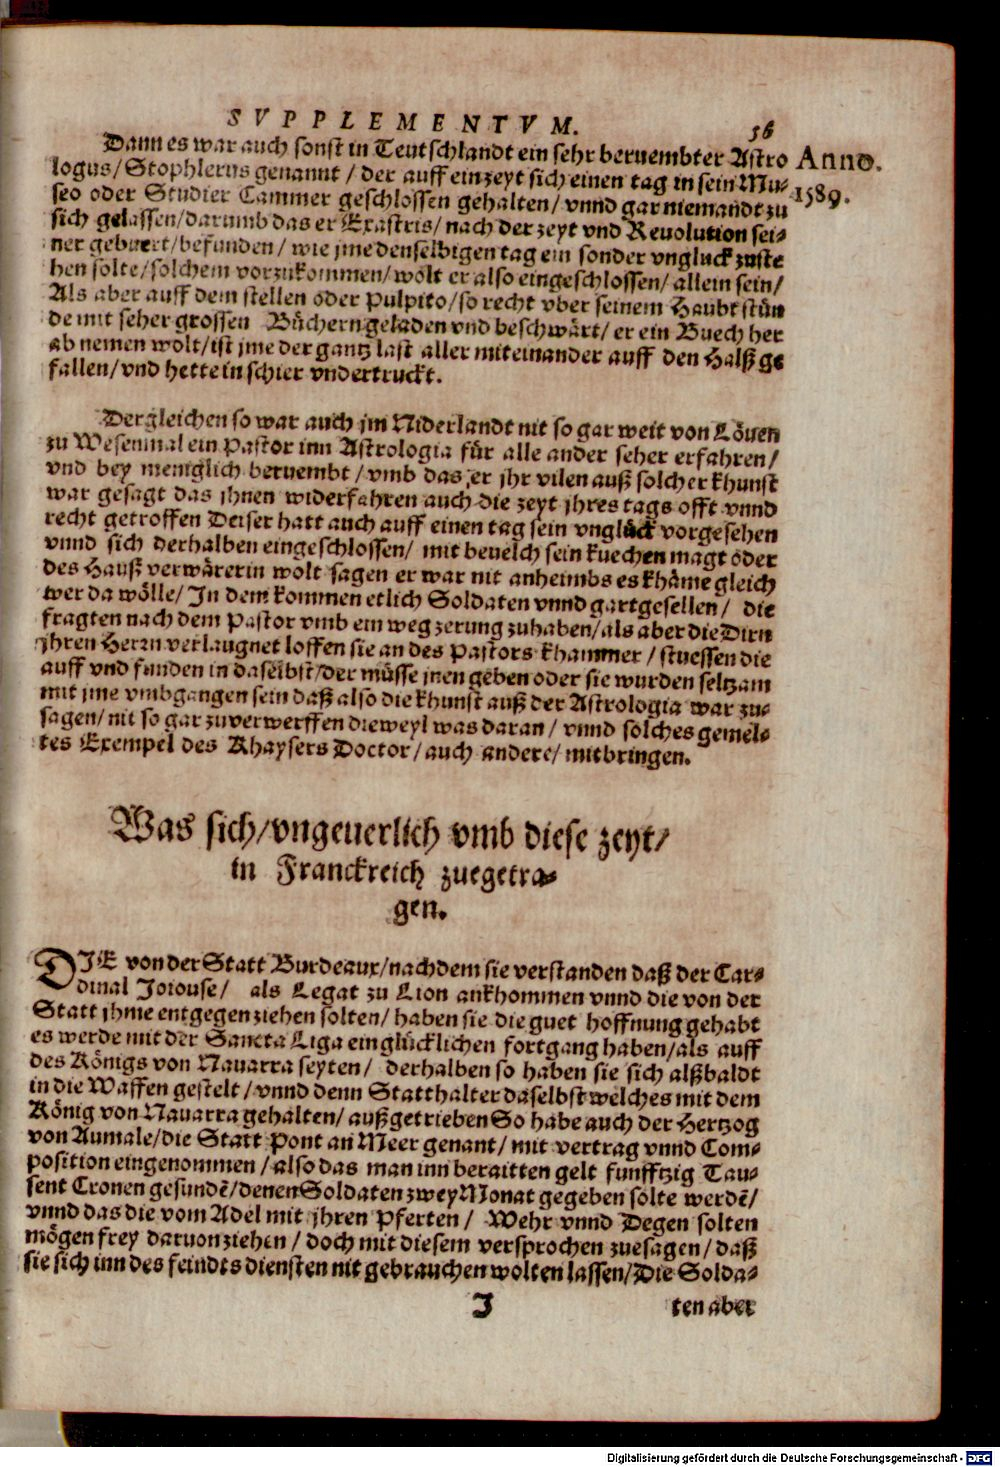 SVPPLEMENTVM. 36
Dann es war auch sonst in Teutschlandt ein sehr beruembter Astro
Anno.
logus/ Stophlerus genannt / der auff ein zeyt sich einen tag in sein Mu-
1589.
seo oder Studier Cammer geschlossen gehalten/ vnnd gar niemandt zu
sich gelassen/ darumb das er Exastris/ nach der zeyt vnd Reuolution sei-
ner gebuert/ befunden/ wie jme denselbigen tag ein sonder vngluck zuste
hen solte/ solchem vorzukommen/ wolt er also eingeschlossen/ allein sein/
Als aber auff dem stellen oder Pulpito/ so recht vber seinem Haubt stůn
de mit seher grossen Bůchern geladen vnd beschwärt/ er ein Buech her
ab nemen wolt/ ist jme der gantz last aller miteinander auff den Halß ge
fallen/ vnd hette in schier vndertruckt.
Dergleichen so war auch jm Niderlandt nit so gar weit von Löuen
zu Wesenmal ein Pastor inn Astrologia für alle ander seher erfahren/
vnd bey meniglich beruembt / vmb das er jhr vilen auß solcher khunst
war gesagt das jhnen widerfahren auch die zeyt jhres tags offt vnnd
recht getroffen Deiser hatt auch auff einen tag sein vnglück vorgesehen
vnnd sich derhalben eingeschlossen/ mit beuelch sein kuechen magt oder
des Hauß verwärerin wolt sagen er war nit anheimbs es khäme gleich
wer da wölle/ In dem kommen etlich Soldaten vnnd gartgesellen/ die
fragten nach dem Pastor vmb ein weg zerung zuhaben/ als aber die Dirn
jhren Herrn verlaugnet loffen sie an des Pastors khammer / stuessen die
auff vnd funden in daselbst/ der müsse jnen geben oder sie wurden seltzam
mit jme vmbgangen sein daß also die khunst auß der Astrologia war zu-
sagen/ nit so gar zuverwerffen dieweyl was daran/ vnnd solches gemel-
tes Exempel des Khaysers Doctor/ auch andere/ mitbringen.
Was sich/ vngeuerlich vmb diese zeyt/
in Franckreich zuegetra-
gen.
DIE von der Statt Burdeaux/ nachdem sie verstanden daß der Car-
dinal Joiouse/ als Legat zu Lion ankhommen vnnd die von der
Statt jhme entgegen ziehen solten/ haben sie die guet hoffnung gehabt
es werde mit der Sancta Liga ein glücklichen fortgang haben/ als auff
des Königs von Nauarra seyten/ derhalben so haben sie sich alßbaldt
in die Waffen gestelt/ vnnd denn Statthalter daselbst welches mit dem
König von Nauarra gehalten/ außgetrieben So habe auch der Hertzog
von Aumale/ die Statt Pont an Meer genant/ mit vertrag vnnd Com-
position eingenommen / also das man inn beraitten gelt funfftzig Tau-
sent Cronen gesundē/ denen Soldaten zwey Monat gegeben solte werdē/
vnnd das die vom Adel mit jhren Pferten/ Wehr vnnd Degen solten
mögen frey daruon ziehen / doch mit diesem versprochen zuesagen/ daß
sie sich inn des feindts diensten nit gebrauchen wolten lassen/ Die Solda-
I ten aber
Digitalisierung gefördert durch die Deutsche Forschungsgemeinschaft - DFG